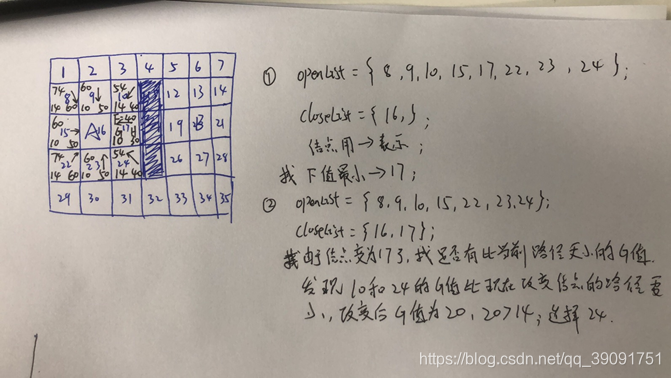 1 2 3 4 5 6 7
74 8 14 60
60 9 10 50
54 10 14 40
12 13 14
60 15 → 10 50
A 16
40 17 10 30
19 B 21
74 22 14 60
60 23 10 50
54 24 14 40
26 27 28
29 30 31 32 33 34 35
① openList = { 8, 9, 10, 15, 17, 22, 23, 24 };
closeList = { 16, };
结点用→表示;
找下值最小→17;
② openList = { 8, 9, 10, 15, 22, 23, 24 };
closeList = { 16, 17 };
由于结点变为17了,找是否有比当前路径更小的G值.
发现10和24的G值比现在改变结点的路径要
小,改变后G值为20,20>14;选择24.
https://blog.csdn.net/qq_39091751